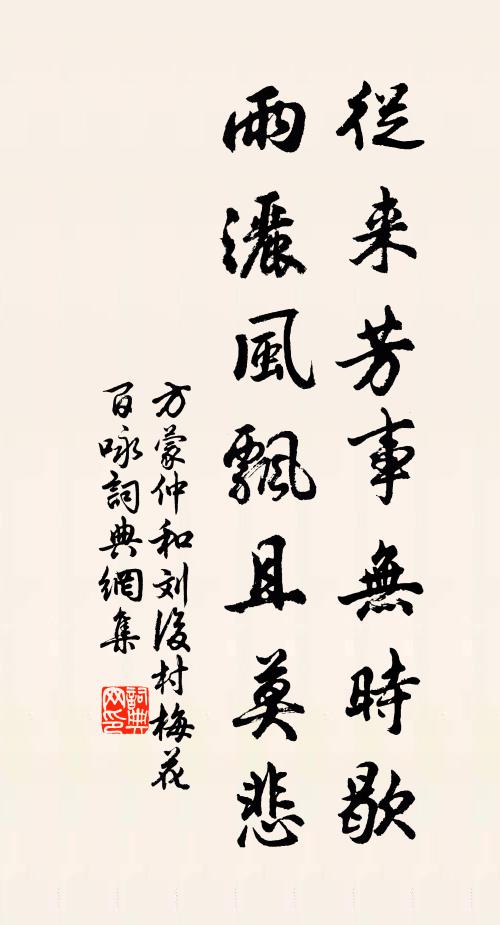 從来芳事無時歇
雨灑風飄且莫悲
方蒙仲和刘後村梅花
百咏詞典網集
詞典网印